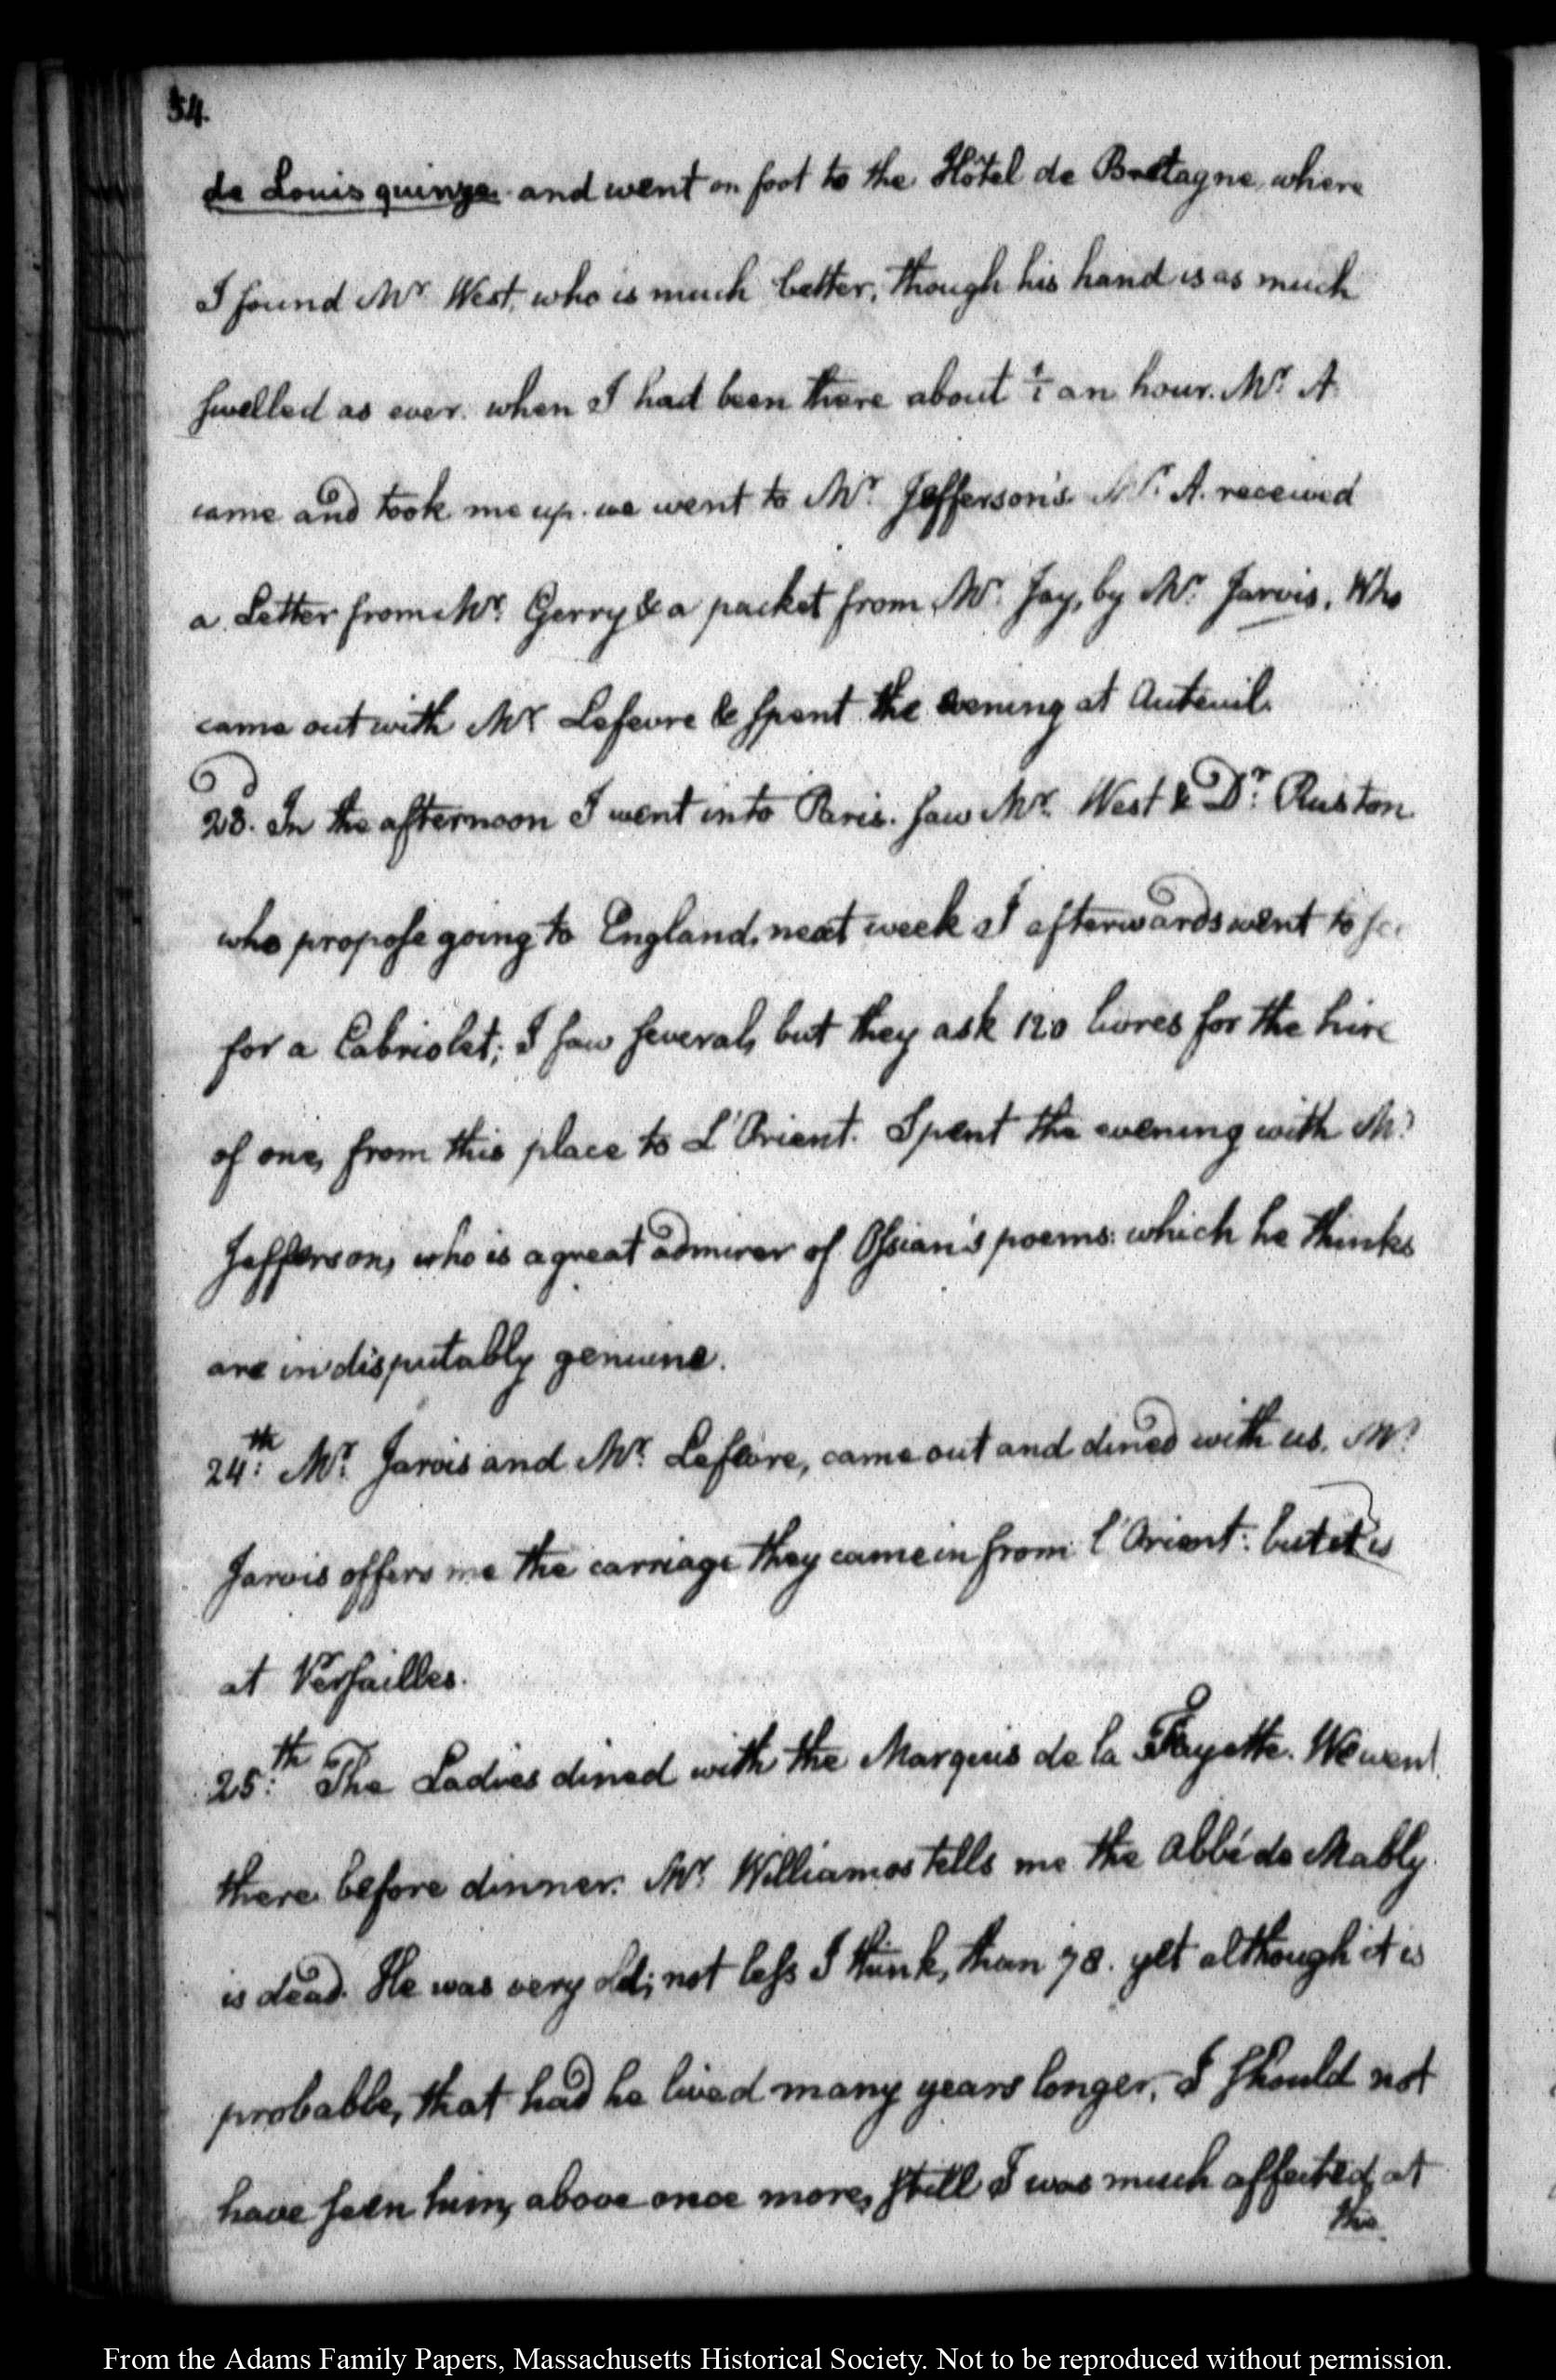 54.
de Louis quinze. and went on foot to the Hôtel de Bretagne, where
I found Mr West, who is much better, though his hand is as much
swelled as ever. when I had been there about ½ an hour. Mr. A.
came and took me up. we went to Mr Jefferson's. Mr. A. received
a Letter from Mr. Gerry & a packet from Mr. Jay, by Mr. Jarvis, Who
came out with Mr Lefevre & spent the evening at Auteuil.
23. In the afternoon I went into Paris. saw Mr. West & Dr. Ruston
who propose going to England, next week I afterwards went to see
for a Cabriolet; I saw several, but they ask 120 livres for the hire
of one, from this place to L'Orient. Spent the evening with Mr.
Jefferson, who is a great admirer of Ossian's poems: which he thinks
are indisputably genuine.
24th. Mr. Jarvis and Mr. Lefevre, came out and dined with us. Mr.
Jarvis offers me the carriage they came in from l'Orient: but it is
at Versailles.
25th. The Ladies dined with the Marquis de la Fayette. We went
there before dinner. Mr Williamos tells me the abbé de Mably
is dead. He was very old; not less I think, than 78. yet although it is
probable, that had he lived many years longer, I should not
have seen him, above once more, still I was much affected, at
the
From the Adams Family Papers, Massachusetts Historical Society. Not to be reproduced without permission.